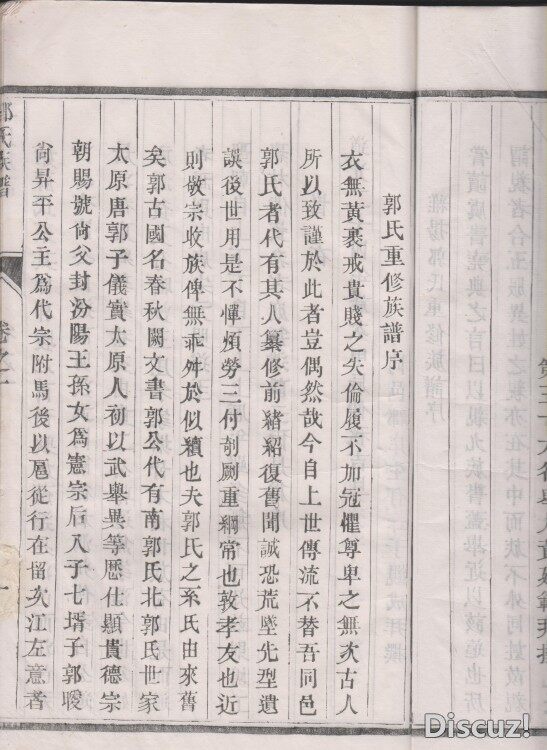 郭氏重修族譜序
衣無黃裹戒貴賤之失倫履不加冠懼尊卑之無次古人
所以致謹於此者豈偶然哉今自上世傳流不替吾同邑
郭氏者代有其人纂修前緒紹復舊聞誠恐荒墜先型遺
誤後世用是不憚煩勞三付剞劂重綱常也敦孝友也近
則敬宗收族俾無乖舛於似續也夫郭氏之系氏由來舊
矣郭古國名春秋闕文書郭公代有南郭氏北郭氏世家
太原唐郭子儀實太原人初以武舉異等歷仕顯貴德宗
朝賜號尚父封汾陽王孫女為憲宗后八子七壻子郭曖
尚昇平公主為代宗附馬後以扈從行在留次江左意者
郭氏族譜
卷之一
Discuz!